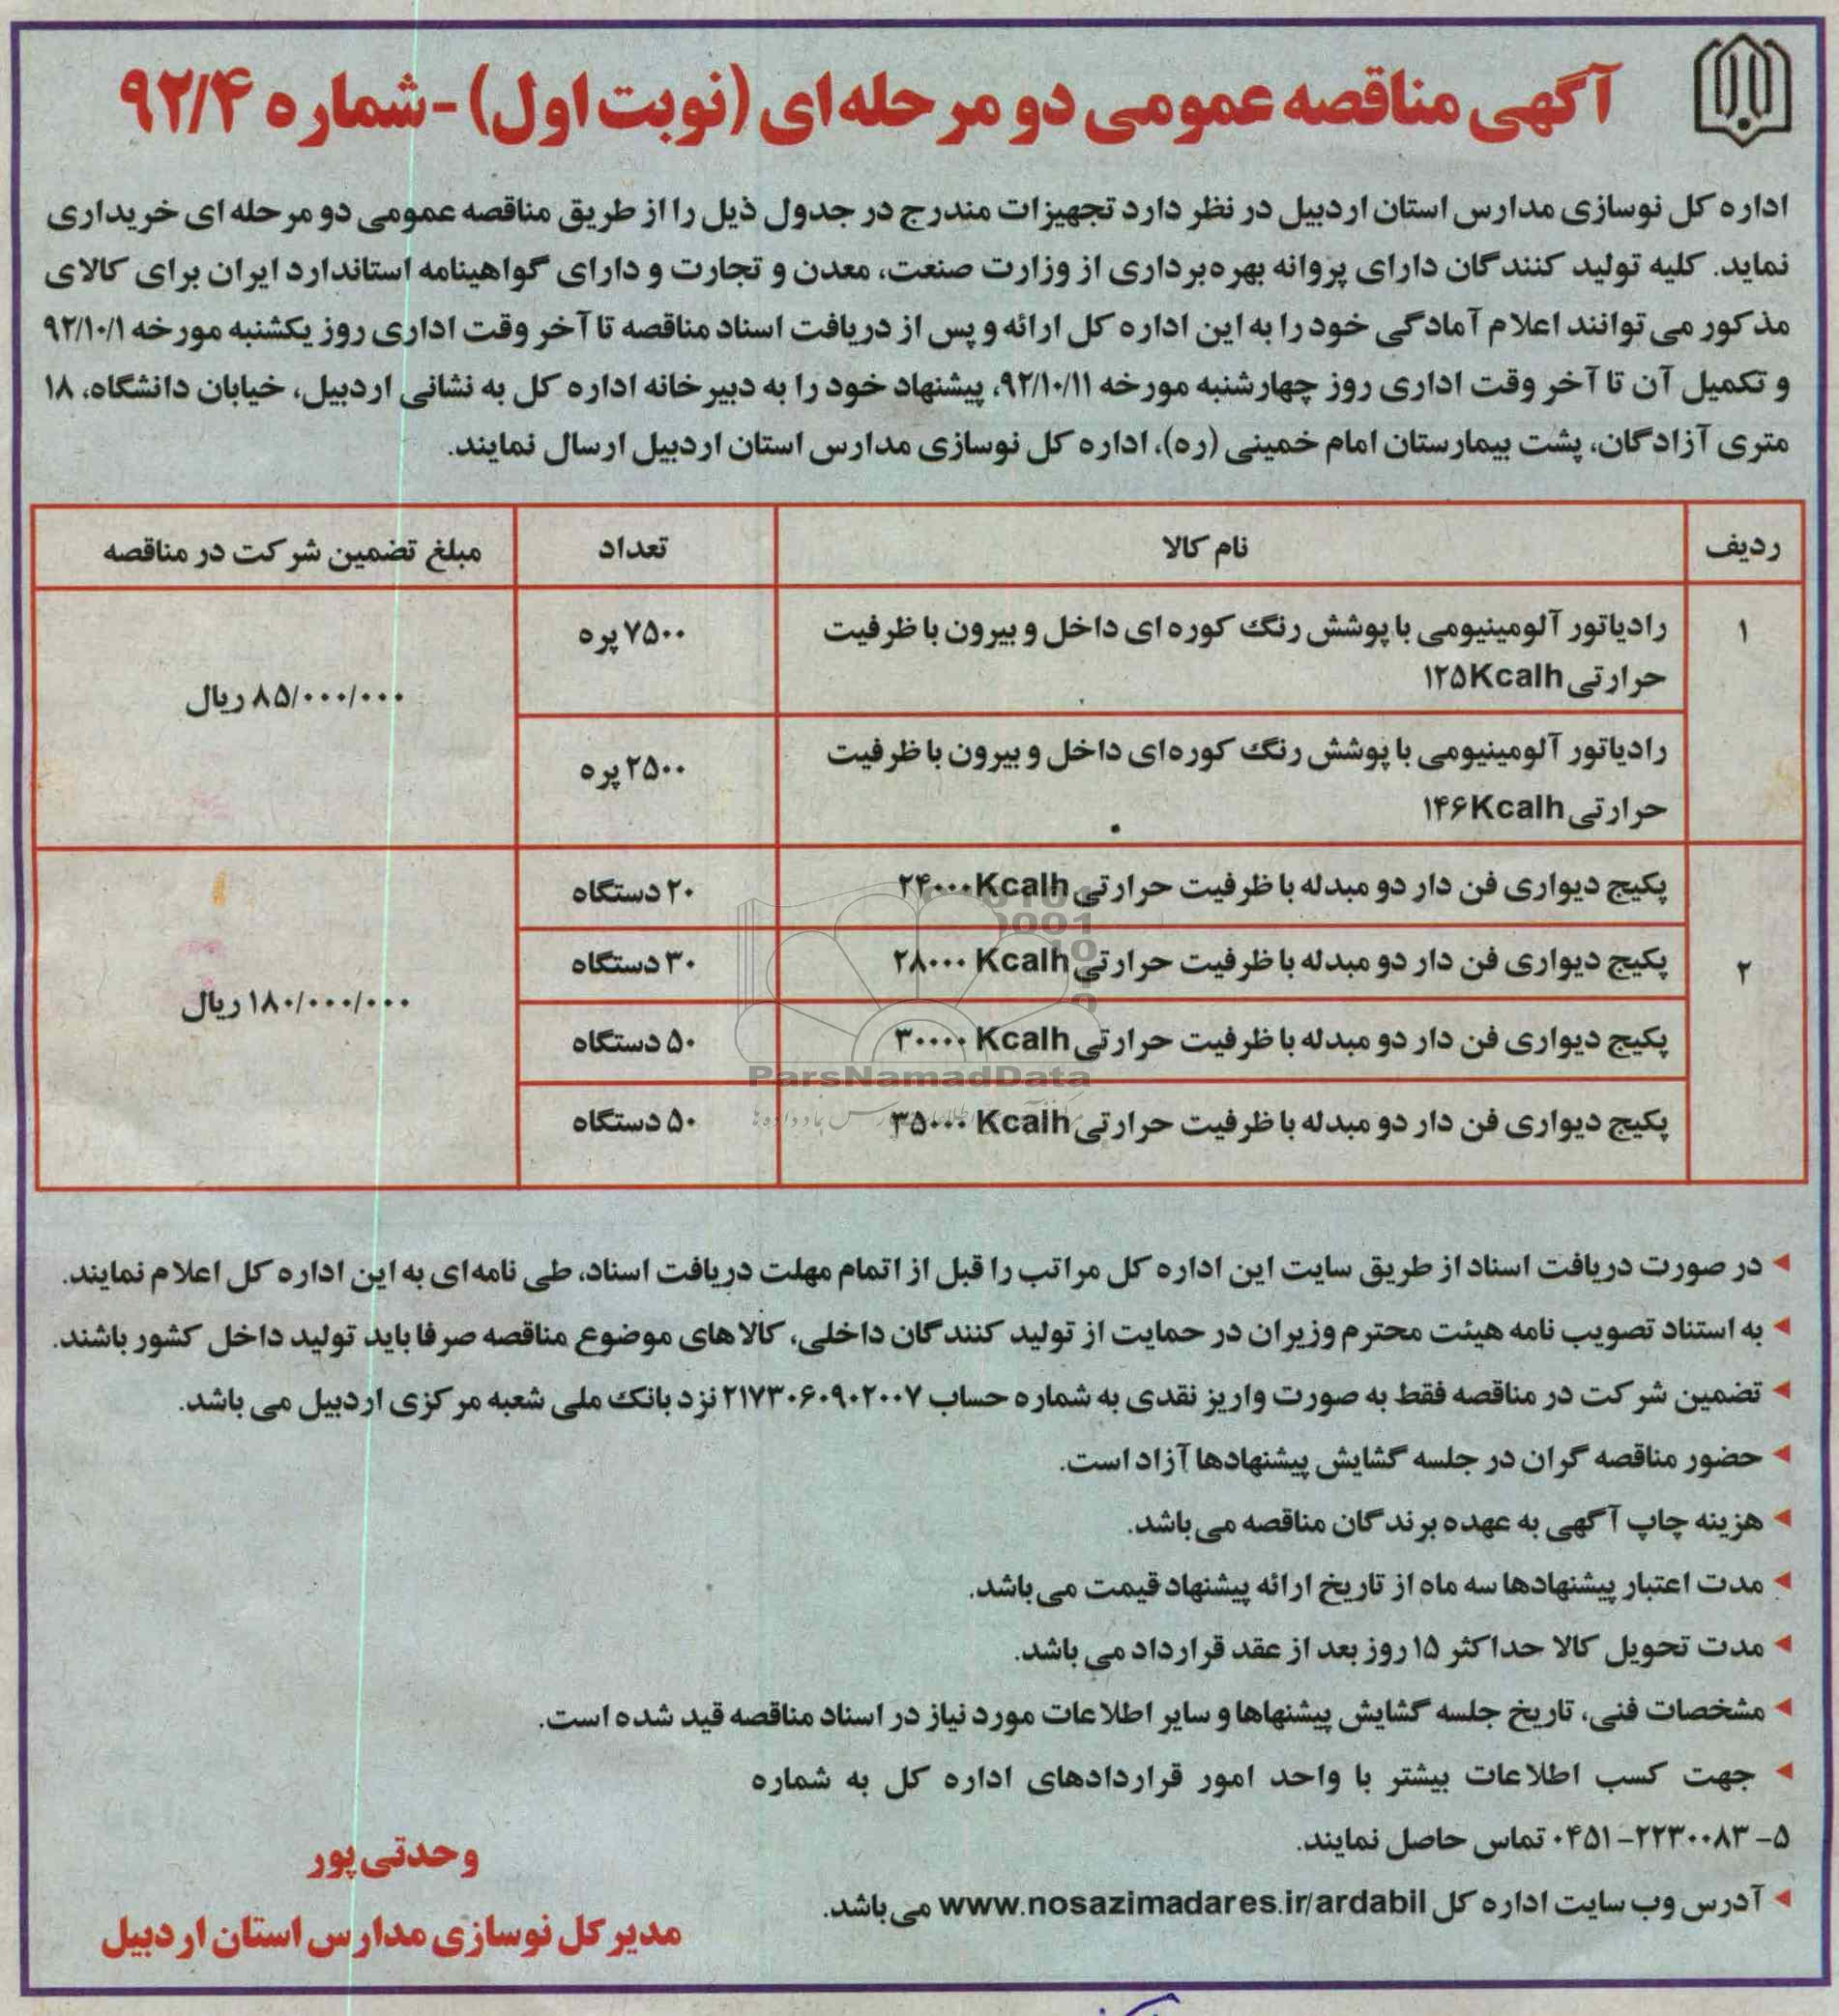 آگهی مناقصه عمومی دو مرحله‌ای (نوبت اول) - شماره ۹۲/۴
اداره کل نوسازی مدارس استان اردبیل در نظر دارد تجهیزات مندرج در جدول ذیل را از طریق مناقصه عمومی دو مرحله ای خریداری
نماید. کلیه تولید کنندگان دارای پروانه بهره‌برداری از وزارت صنعت، معدن و تجارت و دارای گواهینامه استاندارد ایران برای کالای
مذکور می توانند اعلام آمادگی خود را به این اداره کل ارائه و پس از دریافت اسناد مناقصه تا آخر وقت اداری روز یکشنبه مورخه ۹۲/۱۰/۱
و تکمیل آن تا آخر وقت اداری روز چهارشنبه مورخه ۹۲/۱۰/۱۱، پیشنهاد خود را به دبیرخانه اداره کل به نشانی اردبیل، خیابان دانشگاه، ۱۸
متری آزادگان، پشت بیمارستان امام خمینی (ره)، اداره کل نوسازی مدارس استان اردبیل ارسال نمایند.
ردیف نام کالا تعداد مبلغ تضمین شرکت در مناقصه
۱ رادیاتور آلومینیومی با پوشش رنگ کوره ای داخل و بیرون با ظرفیت
حرارتی ۱۲۵Kcalh ۷۵۰۰ پره ۸۵/۰۰۰/۰۰۰ ریال
رادیاتور آلومینیومی با پوشش رنگ کوره‌ای داخل و بیرون با ظرفیت
حرارتی ۱۴۶Kcalh ۲۵۰۰ پره
۲ پکیج دیواری فن دار دو مبدله با ظرفیت حرارتی ۲۴۰۰۰Kcalh ۲۰ دستگاه ۱۸۰/۰۰۰/۰۰۰ ریال
پکیج دیواری فن دار دو مبدله با ظرفیت حرارتی ۲۸۰۰۰ Kcalh ۳۰ دستگاه
پکیج دیواری فن دار دو مبدله با ظرفیت حرارتی ۳۰۰۰۰ Kcalh ۵۰ دستگاه
پکیج دیواری فن دار دو مبدله با ظرفیت حرارتی ۳۵۰۰۰ Kcalh ۵۰ دستگاه
ParsNamadData
در صورت دریافت اسناد از طریق سایت این اداره کل مراتب را قبل از اتمام مهلت دریافت اسناد، طی نامه‌ای به این اداره کل اعلام نمایند.
به استناد تصویب نامه هیئت محترم وزیران در حمایت از تولید کنندگان داخلی، کالاهای موضوع مناقصه صرفا باید تولید داخل کشور باشند.
تضمین شرکت در مناقصه فقط به صورت واریز نقدی به شماره حساب ۲۱۷۳۰۶۰۹۰۲۰۰۷ نزد بانک ملی شعبه مرکزی اردبیل می باشد.
حضور مناقصه گران در جلسه گشایش پیشنهادها آزاد است.
هزینه چاپ آگهی به عهده برندگان مناقصه می‌باشد.
مدت اعتبار پیشنهادها سه ماه از تاریخ ارائه پیشنهاد قیمت می‌باشد.
مدت تحویل کالا حداکثر ۱۵ روز بعد از عقد قرارداد می باشد.
مشخصات فنی، تاریخ جلسه گشایش پیشنهاها و سایر اطلاعات مورد نیاز در اسناد مناقصه قید شده است.
جهت کسب اطلاعات بیشتر با واحد امور قراردادهای اداره کل به شماره
۵- ۲۲۳۰۰۸۳-۰۴۵۱ تماس حاصل نمایند.
آدرس وب سایت اداره کل www.nosazimadares.ir/ardabil می‌باشد.
وحدتی پور
مدیرکل نوسازی مدارس استان اردبیل